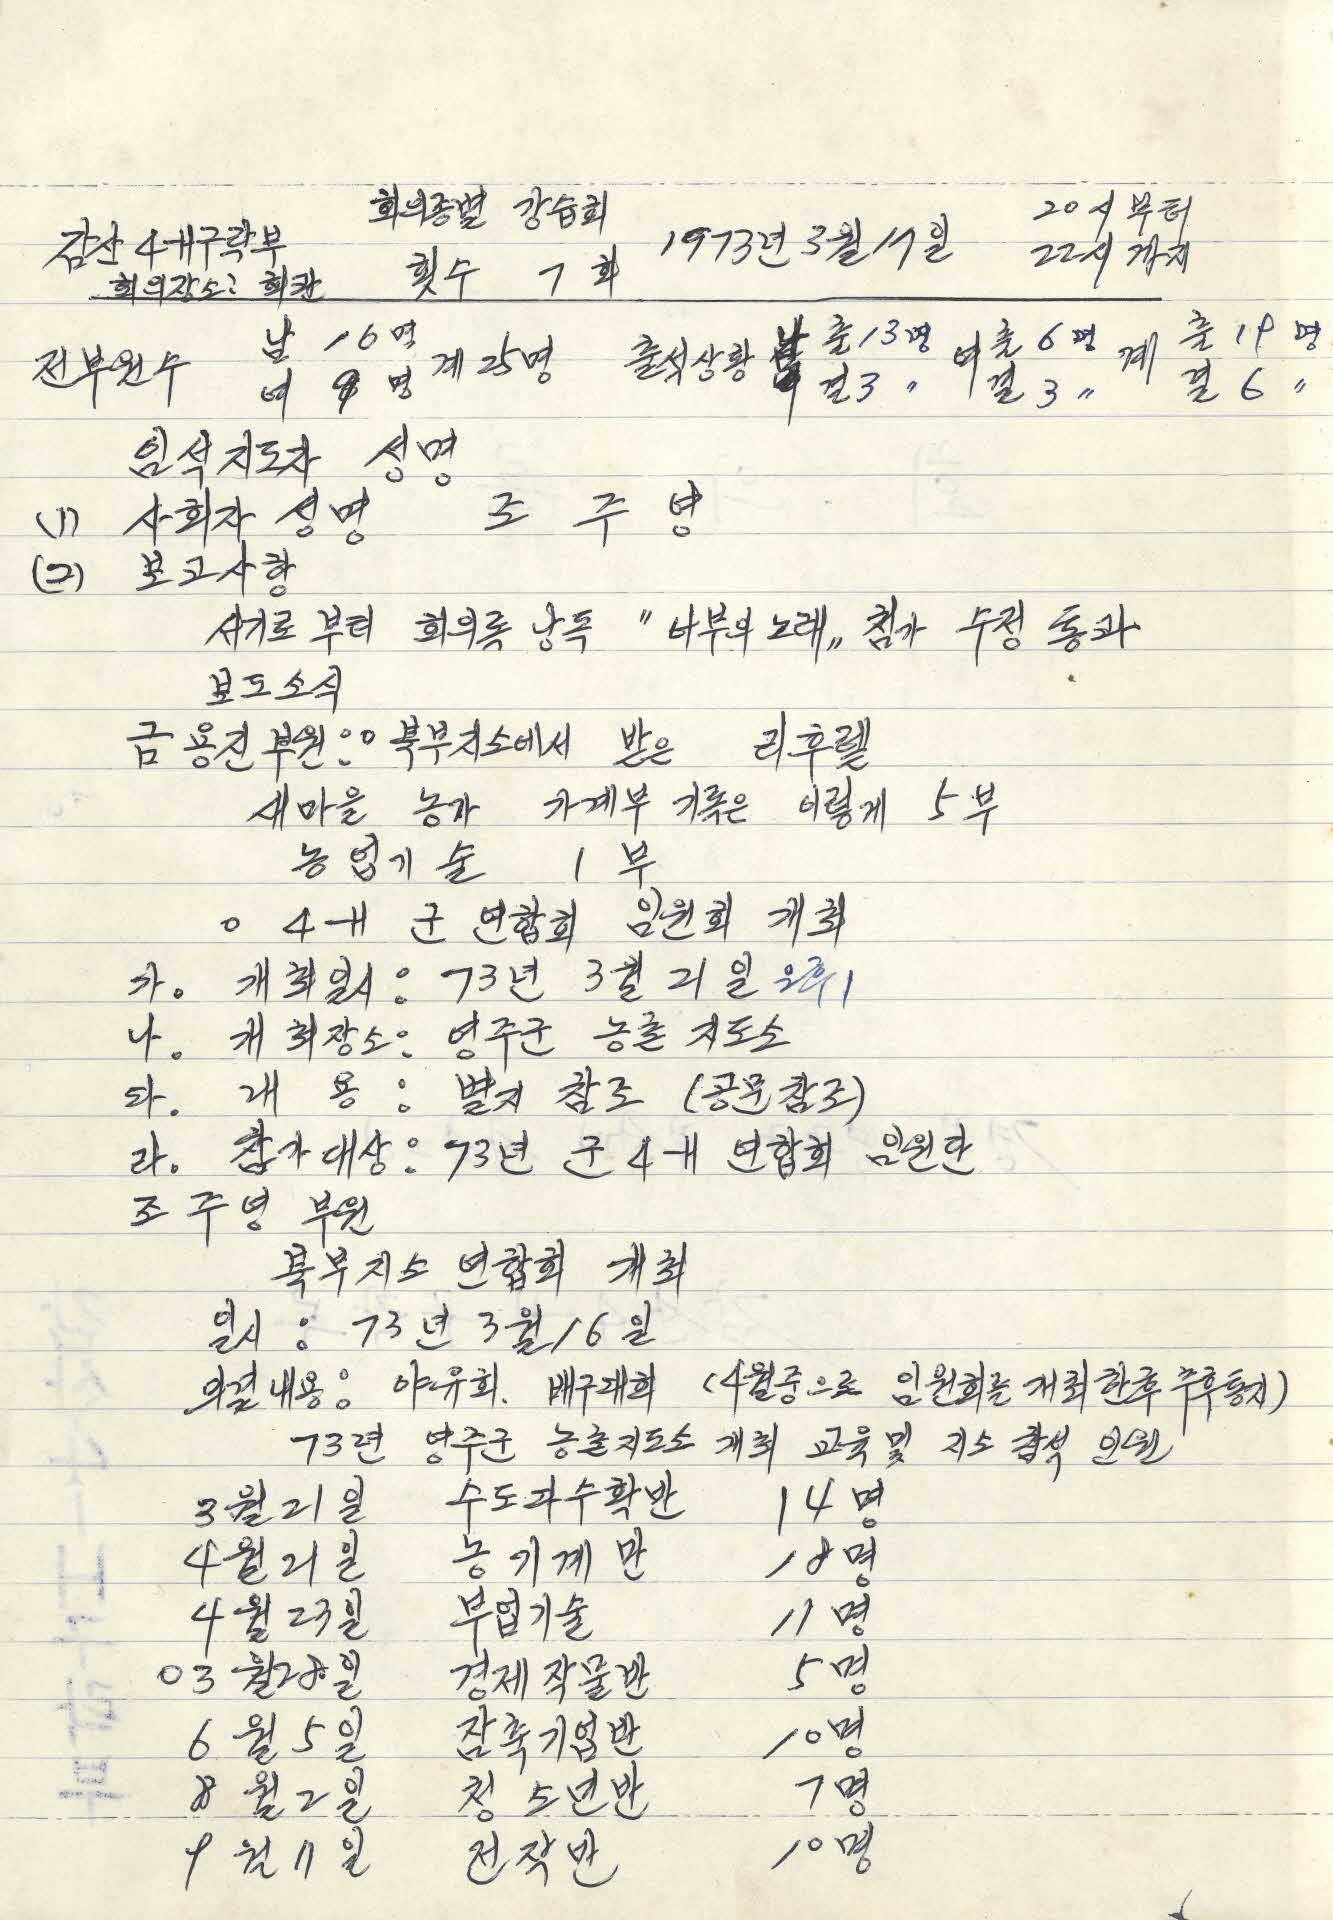 회의종별 강습회
감산 4-H구락부 횟수 7회 1973년 3월 17일 20시부터 22시까지
회의장소: 회관
전부원수 남 16명 여 9명 계 25명 출석상황 남 출 13명 결 3〃 여 출 6명 결 3〃 계 출 19명 결 6〃
임석지도자 성명
(1) 사회자 성명 조주영
(2) 보고사항
서기로 부터 회의록 낭독 "너부의 노래" 첨가 수정 통과
보도소식
금용진부원: o 북부지소에서 받은 리후렡
새마을 농가 가계부 기록은 이렇게 5부
농업기술 1부
o 4-H 군 연합회 임원회 개최
가. 개최일시: 73년 3월 21일 오후 1
나. 개최장소: 영주군 농촌지도소
다. 내용: 별지 참조 (공문참조)
라. 참가대상: 73년 군 4-H 연합회 임원단
조주영 부원
북부지소 연합회 개최
일시: 73년 3월 16일
의결내용: 야유회. 배구대회 (4월중으로 임원회를 개최한후 추후통지)
73년 영주군 농촌지도소 개최 교육및 지소 참석 인원
3월 21일 수도다수확반 14명
4월 21일 농기계반 18명
4월 23일 부업기술 11명
o 3월 28일 경제작물반 5명
6월 5일 잠축기업반 10명
8월 2일 청소년반 7명
9월 11일 전작반 10명